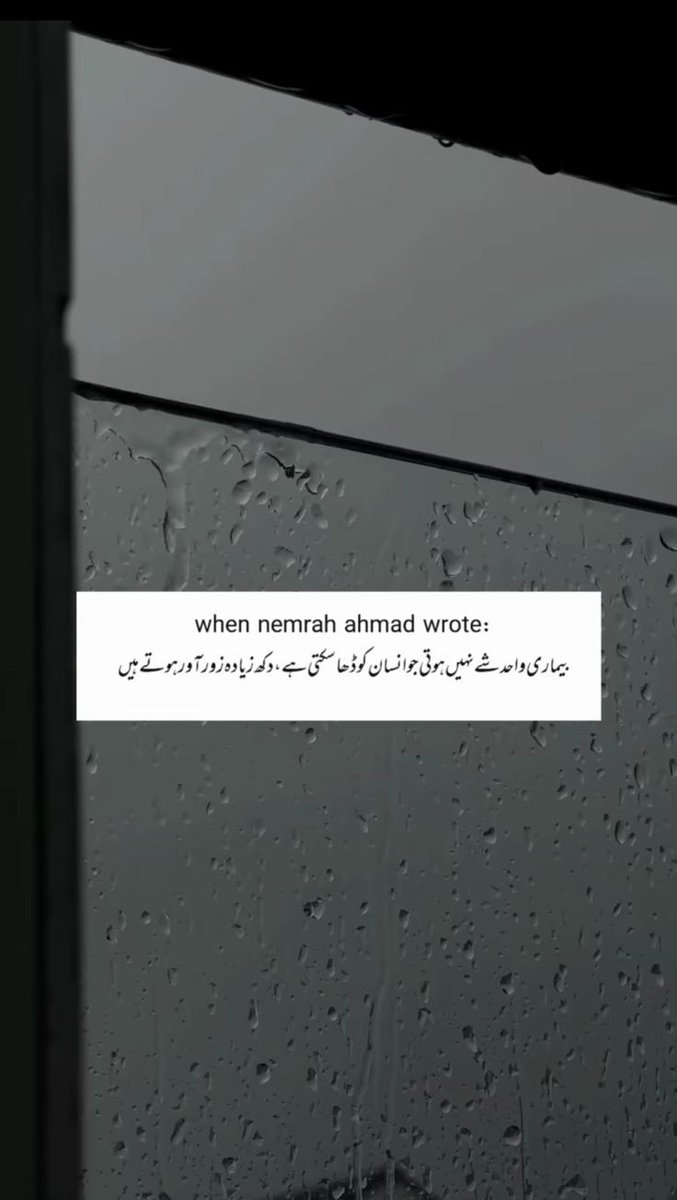 when nemrah ahmad wrote:
بیماری واحد شے نہیں ہوتی جو انسان کو ڈھا سکتی ہے، دکھ زیادہ زور آور ہوتے ہیں